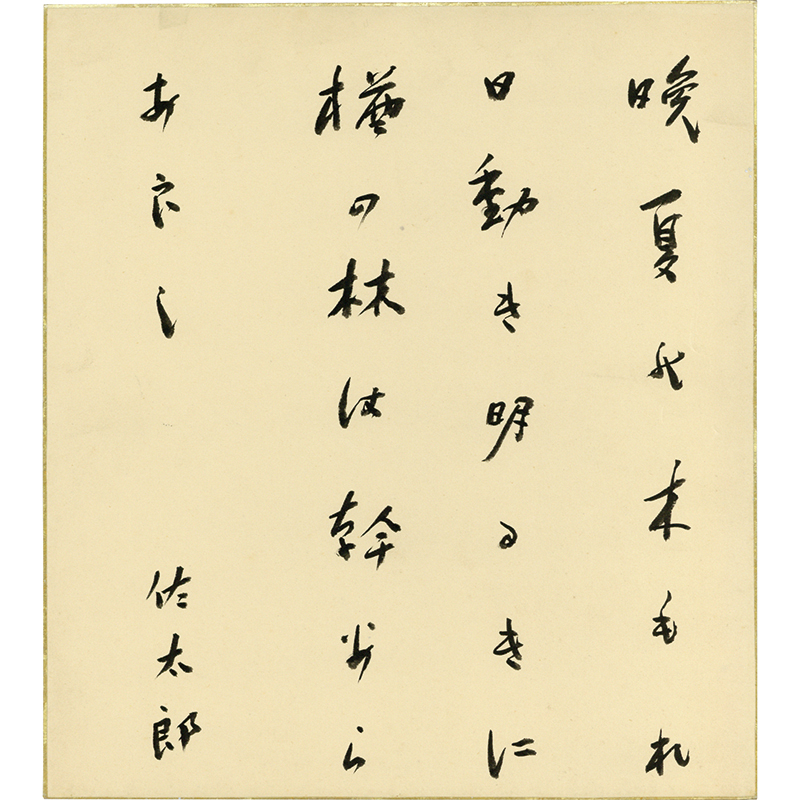 晩夏の木もれ
日動き明るきに
楢の林は幹あら
あらし
佐太郎